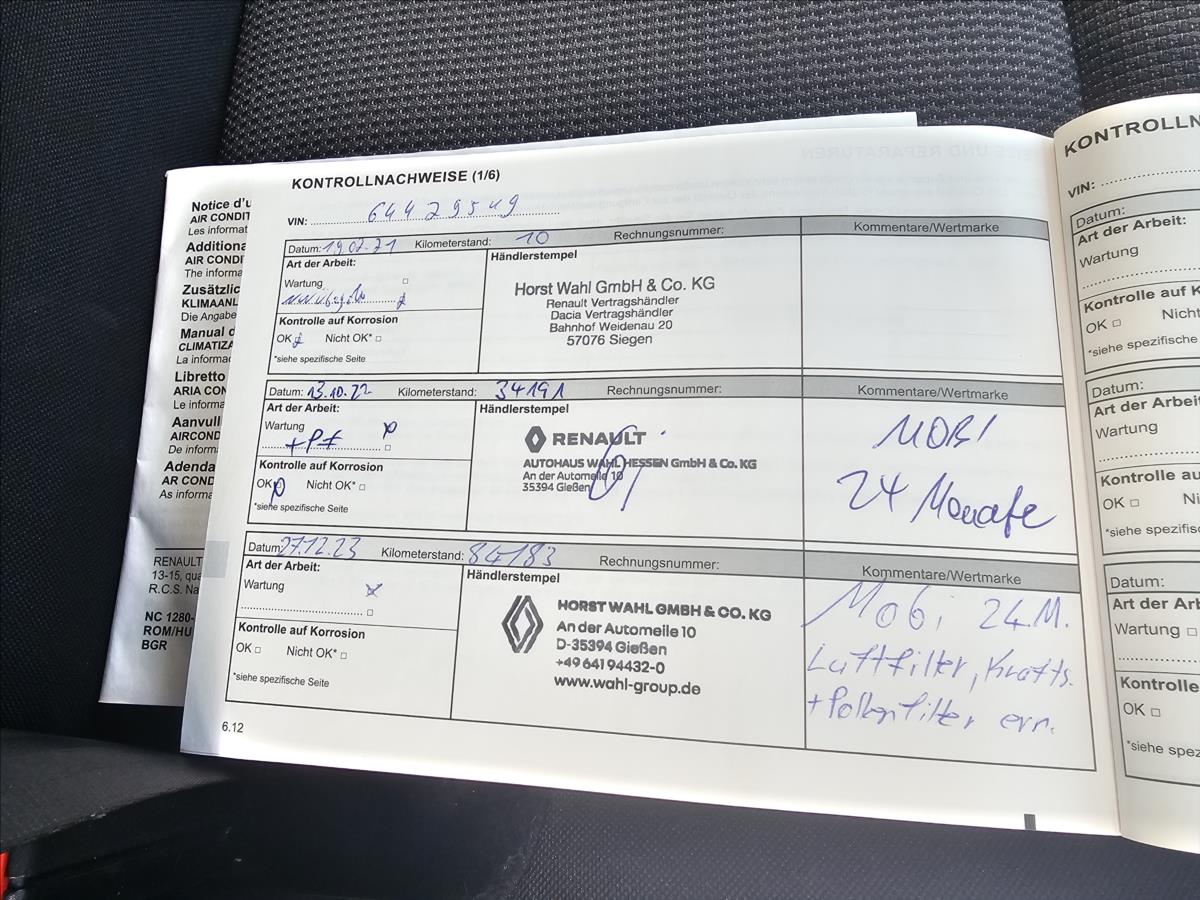 Notice d'u
AIR CONDIT
Les informat
Additiona
AIR CONDI
The informa
Zusätzlic
KLIMAANL
Die Angabe
Manual d
CLIMATIZA
La informac
Libretto
ARIA CON
Le informa
Aanvull
AIRCOND
De inform
Adenda
AR COND
As informa
RENAULT
13-15, qua
R.C.S. Na
NC 1280-
ROM/HU
BGR
KONTROLLNACHWEISE (1/6)
VIN: 64429549
Datum: 19.07.21 Kilometerstand: 10 Rechnungsnummer: Kommentare/Wertmarke
Art der Arbeit:
Wartung
Kontrolle auf Korrosion
OK Nicht OK*
*siehe spezifische Seite
Händlerstempel
Horst Wahl GmbH & Co. KG
Renault Vertragshändler
Dacia Vertragshändler
Bahnhof Weidenau 20
57076 Siegen
Datum: 13.10.22 Kilometerstand: 34191 Rechnungsnummer: Kommentare/Wertmarke
Art der Arbeit:
Wartung
Kontrolle auf Korrosion
OK Nicht OK*
*siehe spezifische Seite
Händlerstempel
RENAULT
AUTOHAUS WAHL HESSEN GmbH & Co. KG
An der Automeile 10
35394 Gießen
MOBI
24 Monate
Datum: 27.12.23 Kilometerstand: 84183 Rechnungsnummer: Kommentare/Wertmarke
Art der Arbeit:
Wartung
Kontrolle auf Korrosion
OK Nicht OK*
*siehe spezifische Seite
Händlerstempel
HORST WAHL GMBH & CO. KG
An der Automeile 10
D-35394 Gießen
+49 64194432-0
www.wahl-group.de
Mobi 24.M.
Luftfilter, Krafts.
+ Pollenfilter ern.
6.12
KONTROLLN
VIN:
Datum:
Art der Arbeit:
Wartung
Kontrolle auf K
OK Nicht
*siehe spezifische
Datum:
Art der Arbei
Wartung
Kontrolle au
OK Ni
*siehe spezifis
Datum:
Art der Arb
Wartung
Kontrolle
OK
*siehe spez